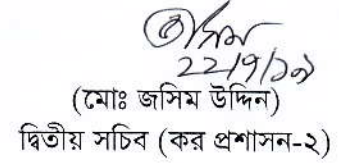 ২২/৭/১৯
(মোঃ জসিম উদ্দিন)
দ্বিতীয় সচিব (কর প্রশাসন-২)